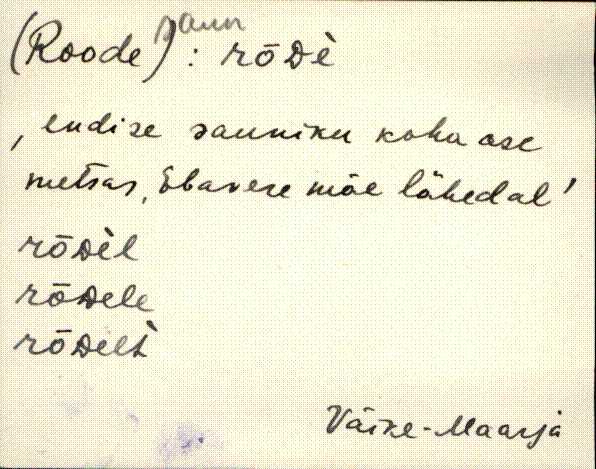 (Roode) saun : rōᴅè
‚ endise sauniku koha ase
metsas, Ebavere mäe lähedal'
rōᴅèl
rōᴅele
rōᴅelt̀
Väike-Maarja